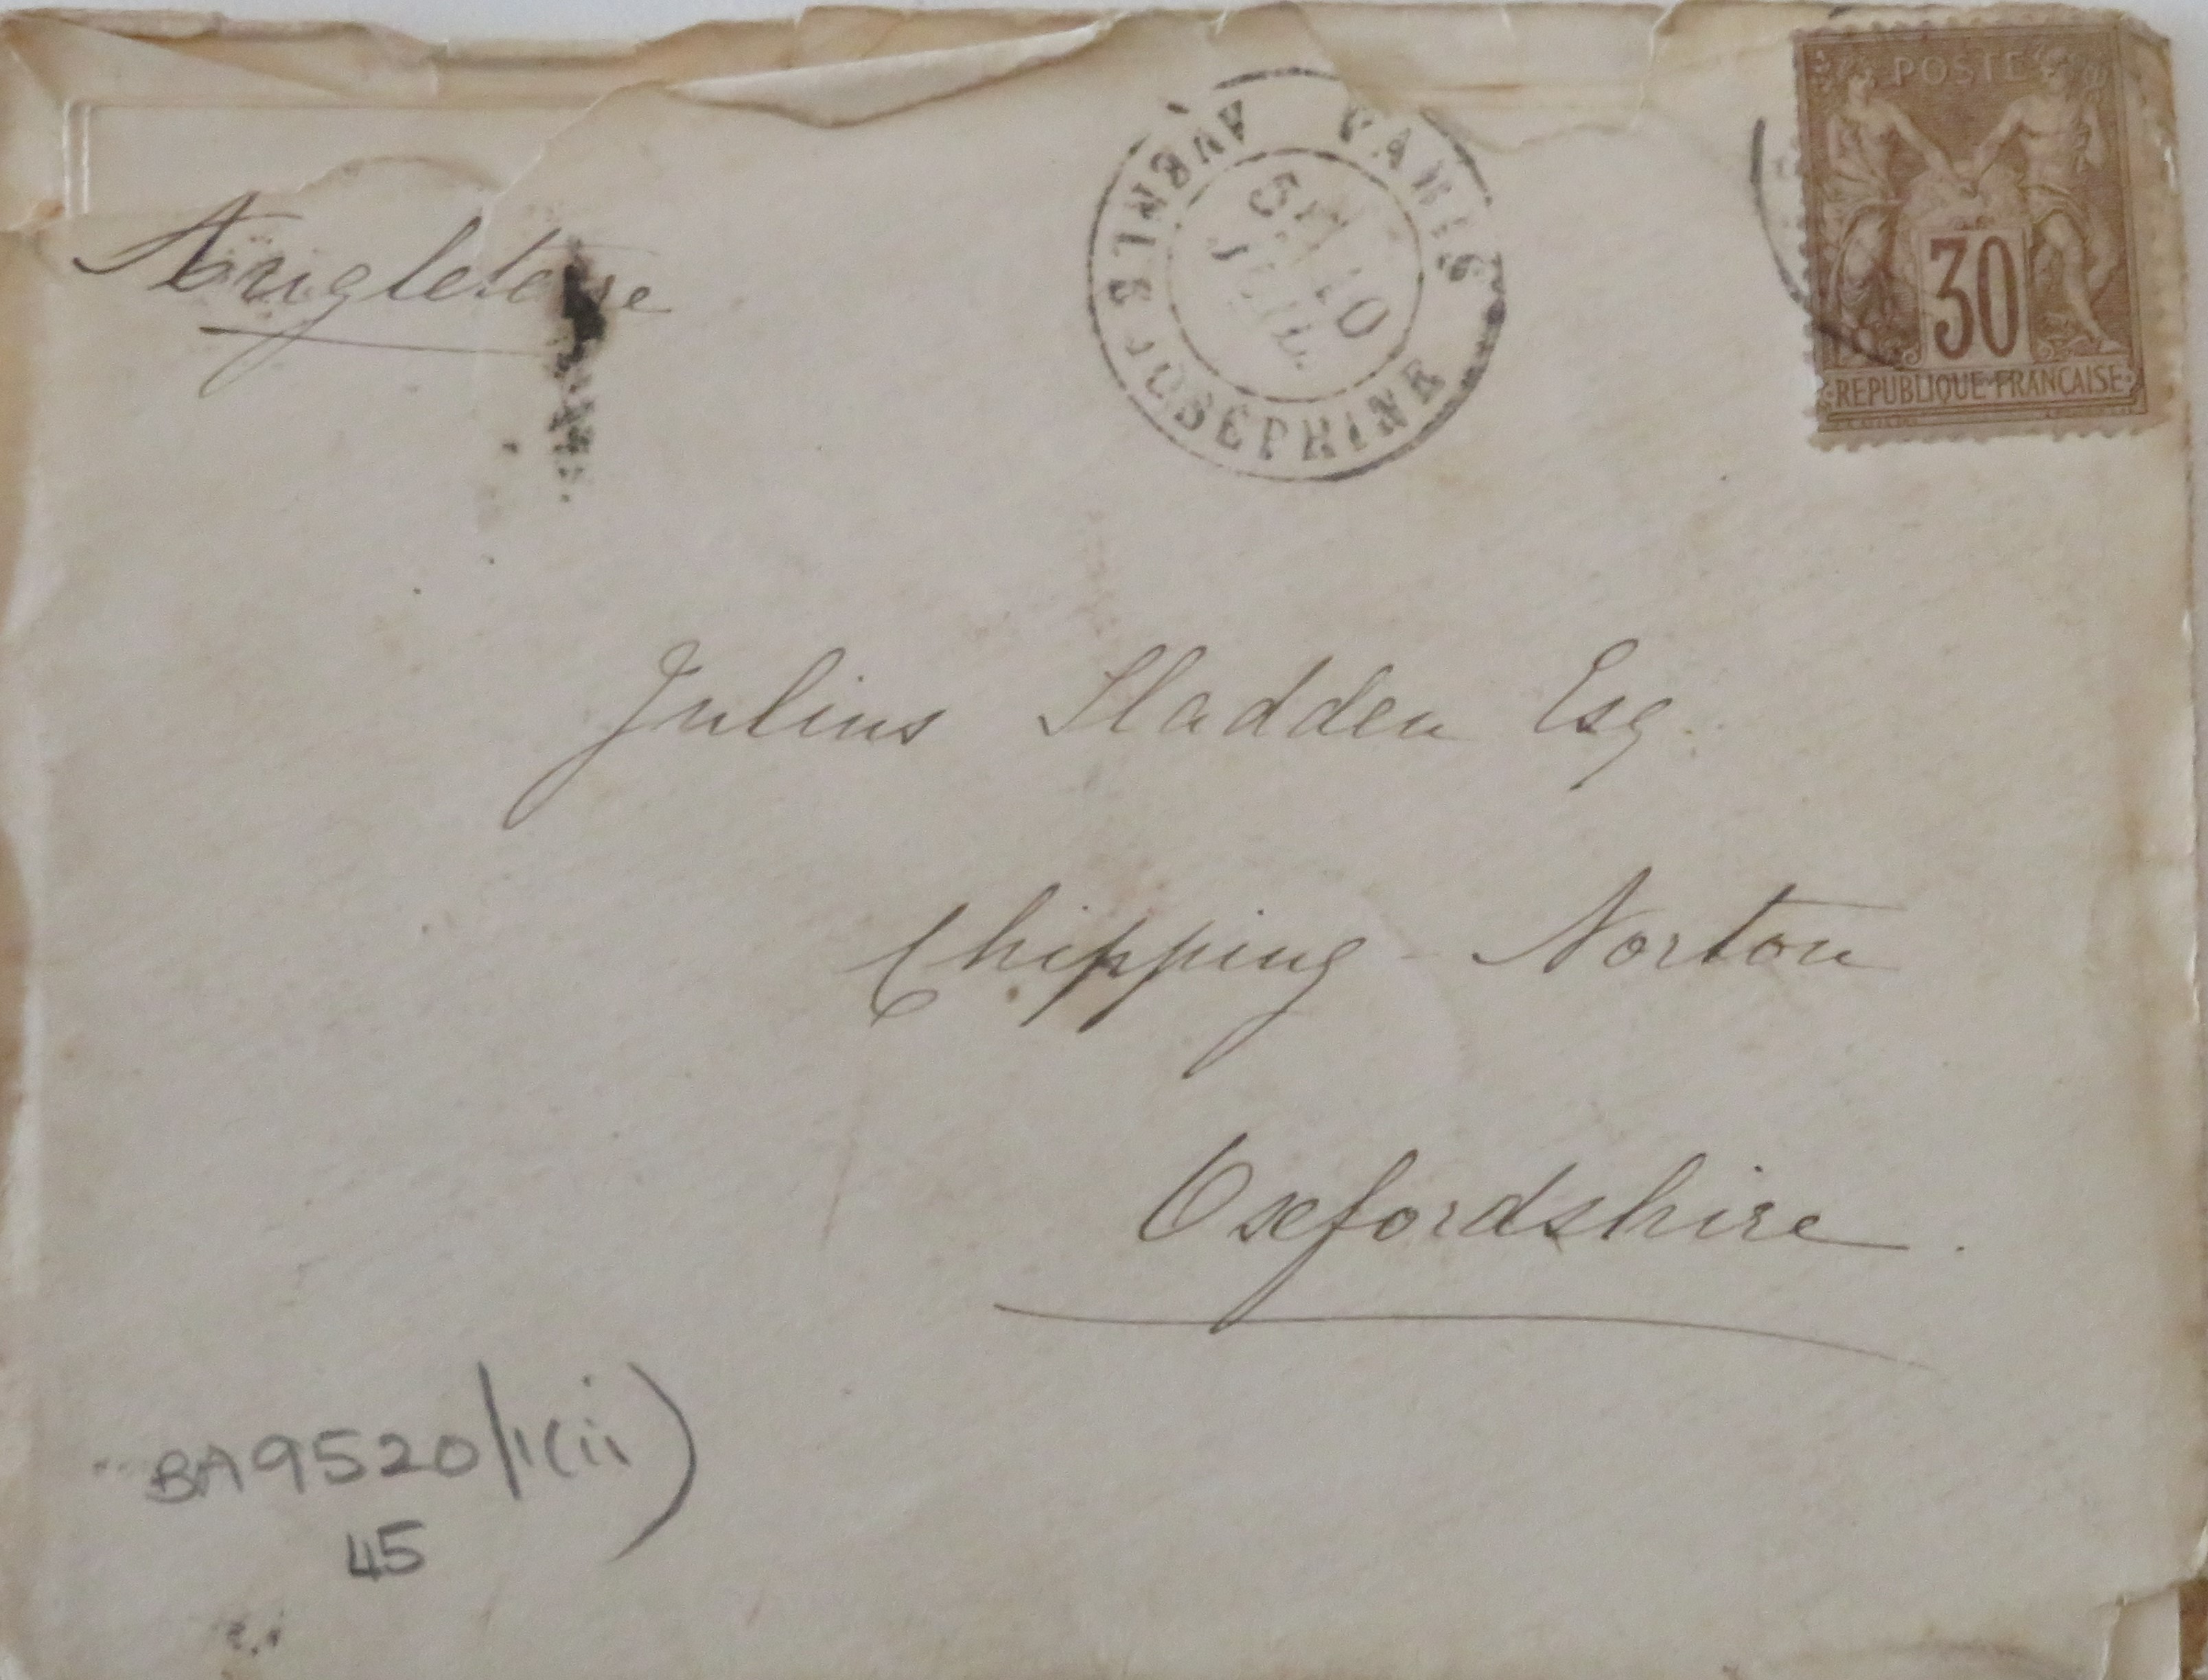 POSTE
30
REPUBLIQUE FRANCAISE
PARIS
AVENUE JOSÉPHINE
5E 10
JUIL
Angleterre
Julius Sladden Esq.
Chipping-Norton
Oxfordshire.
BA9520/1(ii)
45